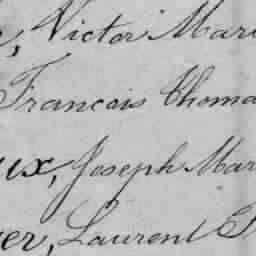 , Victor Mari
Francois Thoma
eux, Joseph Mar
er, Laurent